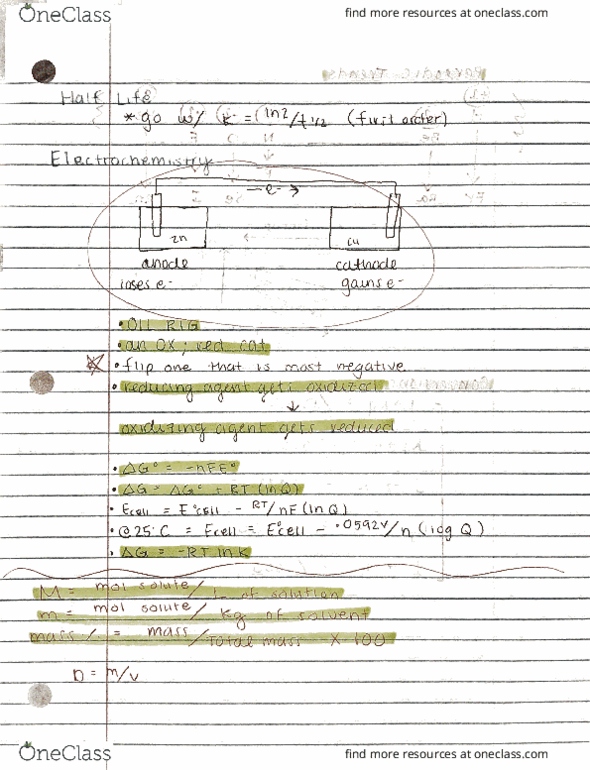 OneClass
find more resources at oneclass.com
Periodic Trends
Half Life
* go w/ k = ln2/t 1/2 (first order)
Electrochemistry
— e- →
zn
cu
anode
cathode
loses e-
gains e-
• OIL RIG
• an ox ; red cat
• flip one that is most negative
• reducing agent gets oxidized
↓
oxidizing agent gets reduced
• ΔG° = -nFE°
• ΔG = ΔG° + RT (ln Q)
• Ecell = E°cell - RT/nF (ln Q)
• @ 25°C = Ecell = E°cell - .0592V/n (log Q)
• ΔG = -RT ln K
M = mol solute / L of solution
m = mol solute / kg of solvent
mass % = mass / Total mass x 100
D = m/v
OneClass
find more resources at oneclass.com